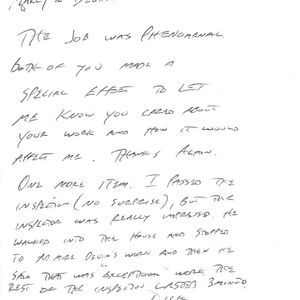 THE JOB WAS PHENOMENAL
BOTH OF YOU MADE A
SPECIAL EFFORT TO LET
ME KNOW YOU CARED ABOUT
YOUR WORK AND HOW IT WOULD
AFFECT ME. THANKS AGAIN.
ONE MORE ITEM. I PASSED THE
INSPECTION (NO SURPRISE), BUT THE
INSPECTOR WAS REALLY IMPRESSED. HE
WALKED INTO THE HOUSE AND STOPPED
TO ADMIRE DEVIN'S WORK AND THEN HE
SAID THAT WAS "EXCEPTIONAL" WORK. THE
REST OF THE INSPECTION LASTED 3 MINUTES